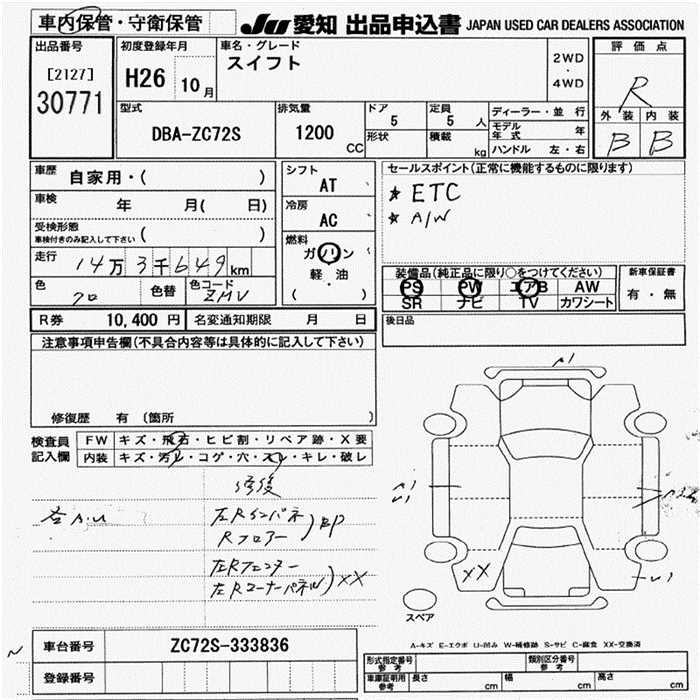 車内保管・守衛保管
JU 愛知 出品申込書 JAPAN USED CAR DEALERS ASSOCIATION
出品番号
[2127]
30771
初度登録年月
H26 10月
車名・グレード
スイフト
2WD
・
4WD
評価点
R
外装 内装
B B
型式
DBA-ZC72S
排気量
1200
CC
ドア
5
定員
5 人
形状
積載
kg
ディーラー・並行
モデル年式 年
ハンドル 左・右
車歴
自家用・( )
車検
年 月( 日)
受検形態
車検付きのみ記入して下さい ( )
走行
14万3千649km
色
クロ
色替
色コード
ZMV
シフト
AT
冷房
AC
燃料
ガソリン
軽・油
( )
セールスポイント(正常に機能するものに限ります)
★ ETC
★ A/W
装備品(純正品に限り○をつけてください)
PS PW エアB AW
SR ナビ TV カワシート
新車保証書
有・無
R券 10,400 円 名変通知期限 月 日
後日品
注意事項申告欄(不具合内容等は具体的に記入して下さい)
修復歴 有 (箇所 )
検査員
記入欄
FW キズ・飛石・ヒビ割・リペア跡・X要
内装 キズ・汚レ・コゲ・穴・スレ・キレ・破レ
修復
左Rインパネ
Rフロアー
BP
左Rフェンダー
左Rコーナーパネル
XX
右A.U
A1
A1
U1
XX
U1
スペア
A-キズ E-エクボ U-凹み W-補修跡 S-サビ C-腐食 XX-交換済
車台番号 ZC72S-333836
登録番号
形式指定番号
参考
類別区分番号
参考
車庫証明用
参考
長さ cm 幅 cm 高さ cm